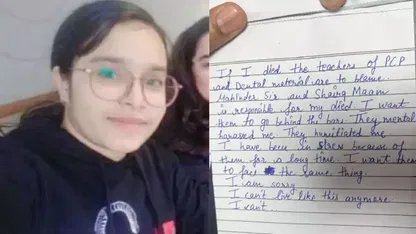 If I died the teachers of PCP
and Dental material are to blame.
Mahinder Sir and Shairg Maam
is responsible for my died. I want
them to go behind the bars. They mental
harased me. They humiliated me
I have been in stress because of
them for a long time. I want them
to fact the same thing.
I am sorry
I can't live like this anymore.
I cant..